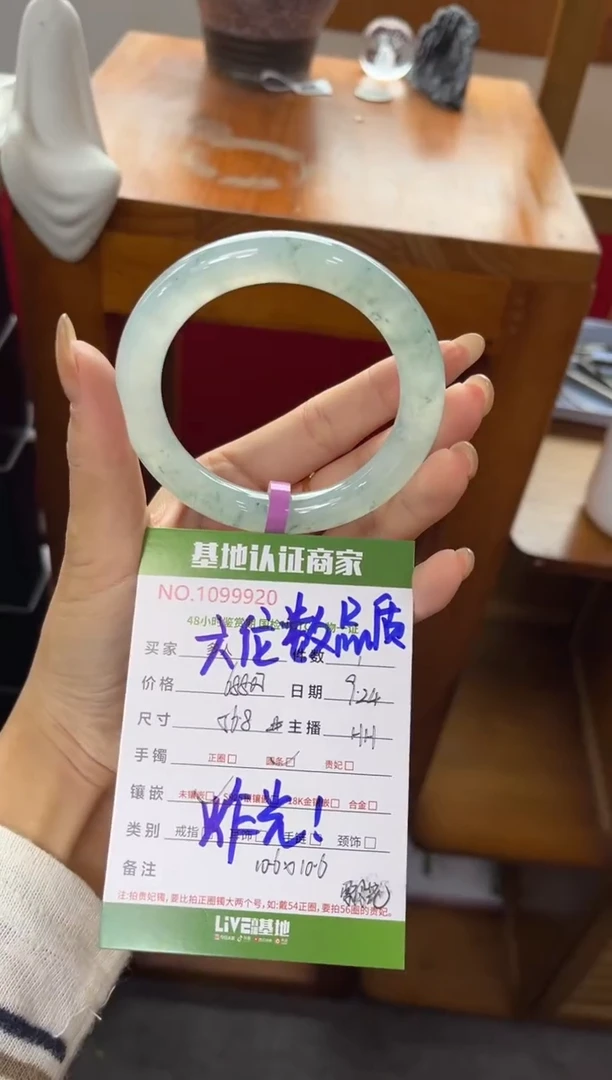 基地认证商家
NO.1099920
六位数品质
买家 件数 1
价格 日期 9.24
尺寸 56.8 主播 HH
手镯 正圈□ 圆条□ 贵妃□
镶嵌 未镶嵌□ 18K金镶嵌□ 合金□
炸光!
类别 戒指□ 手链□ 颈饰□
备注 10.6×10.6
注:拍贵妃镯,要比拍正圈镯大两个号,如:戴54正圈,要拍56圈的贵妃。
LiVE基地